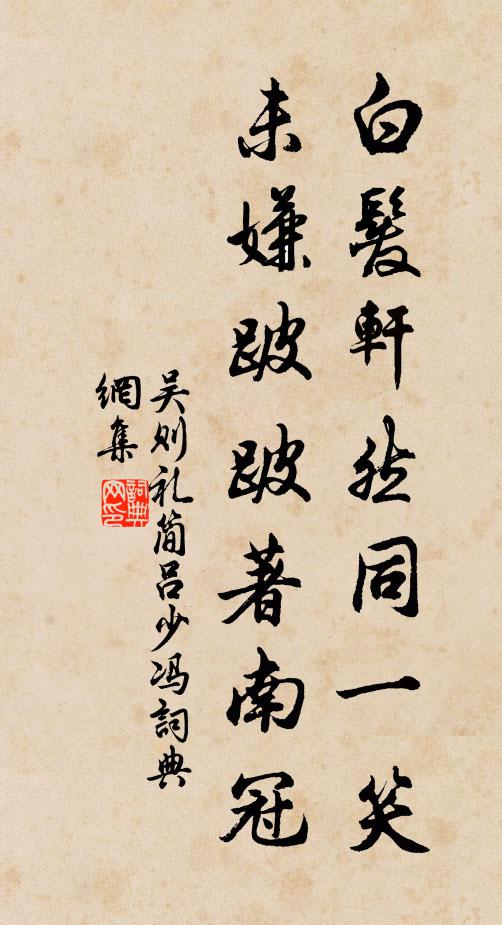 白髮軒然同一笑
未嫌跛跛著南冠
吴则礼简吕少冯詞典
網集
詞典
网印